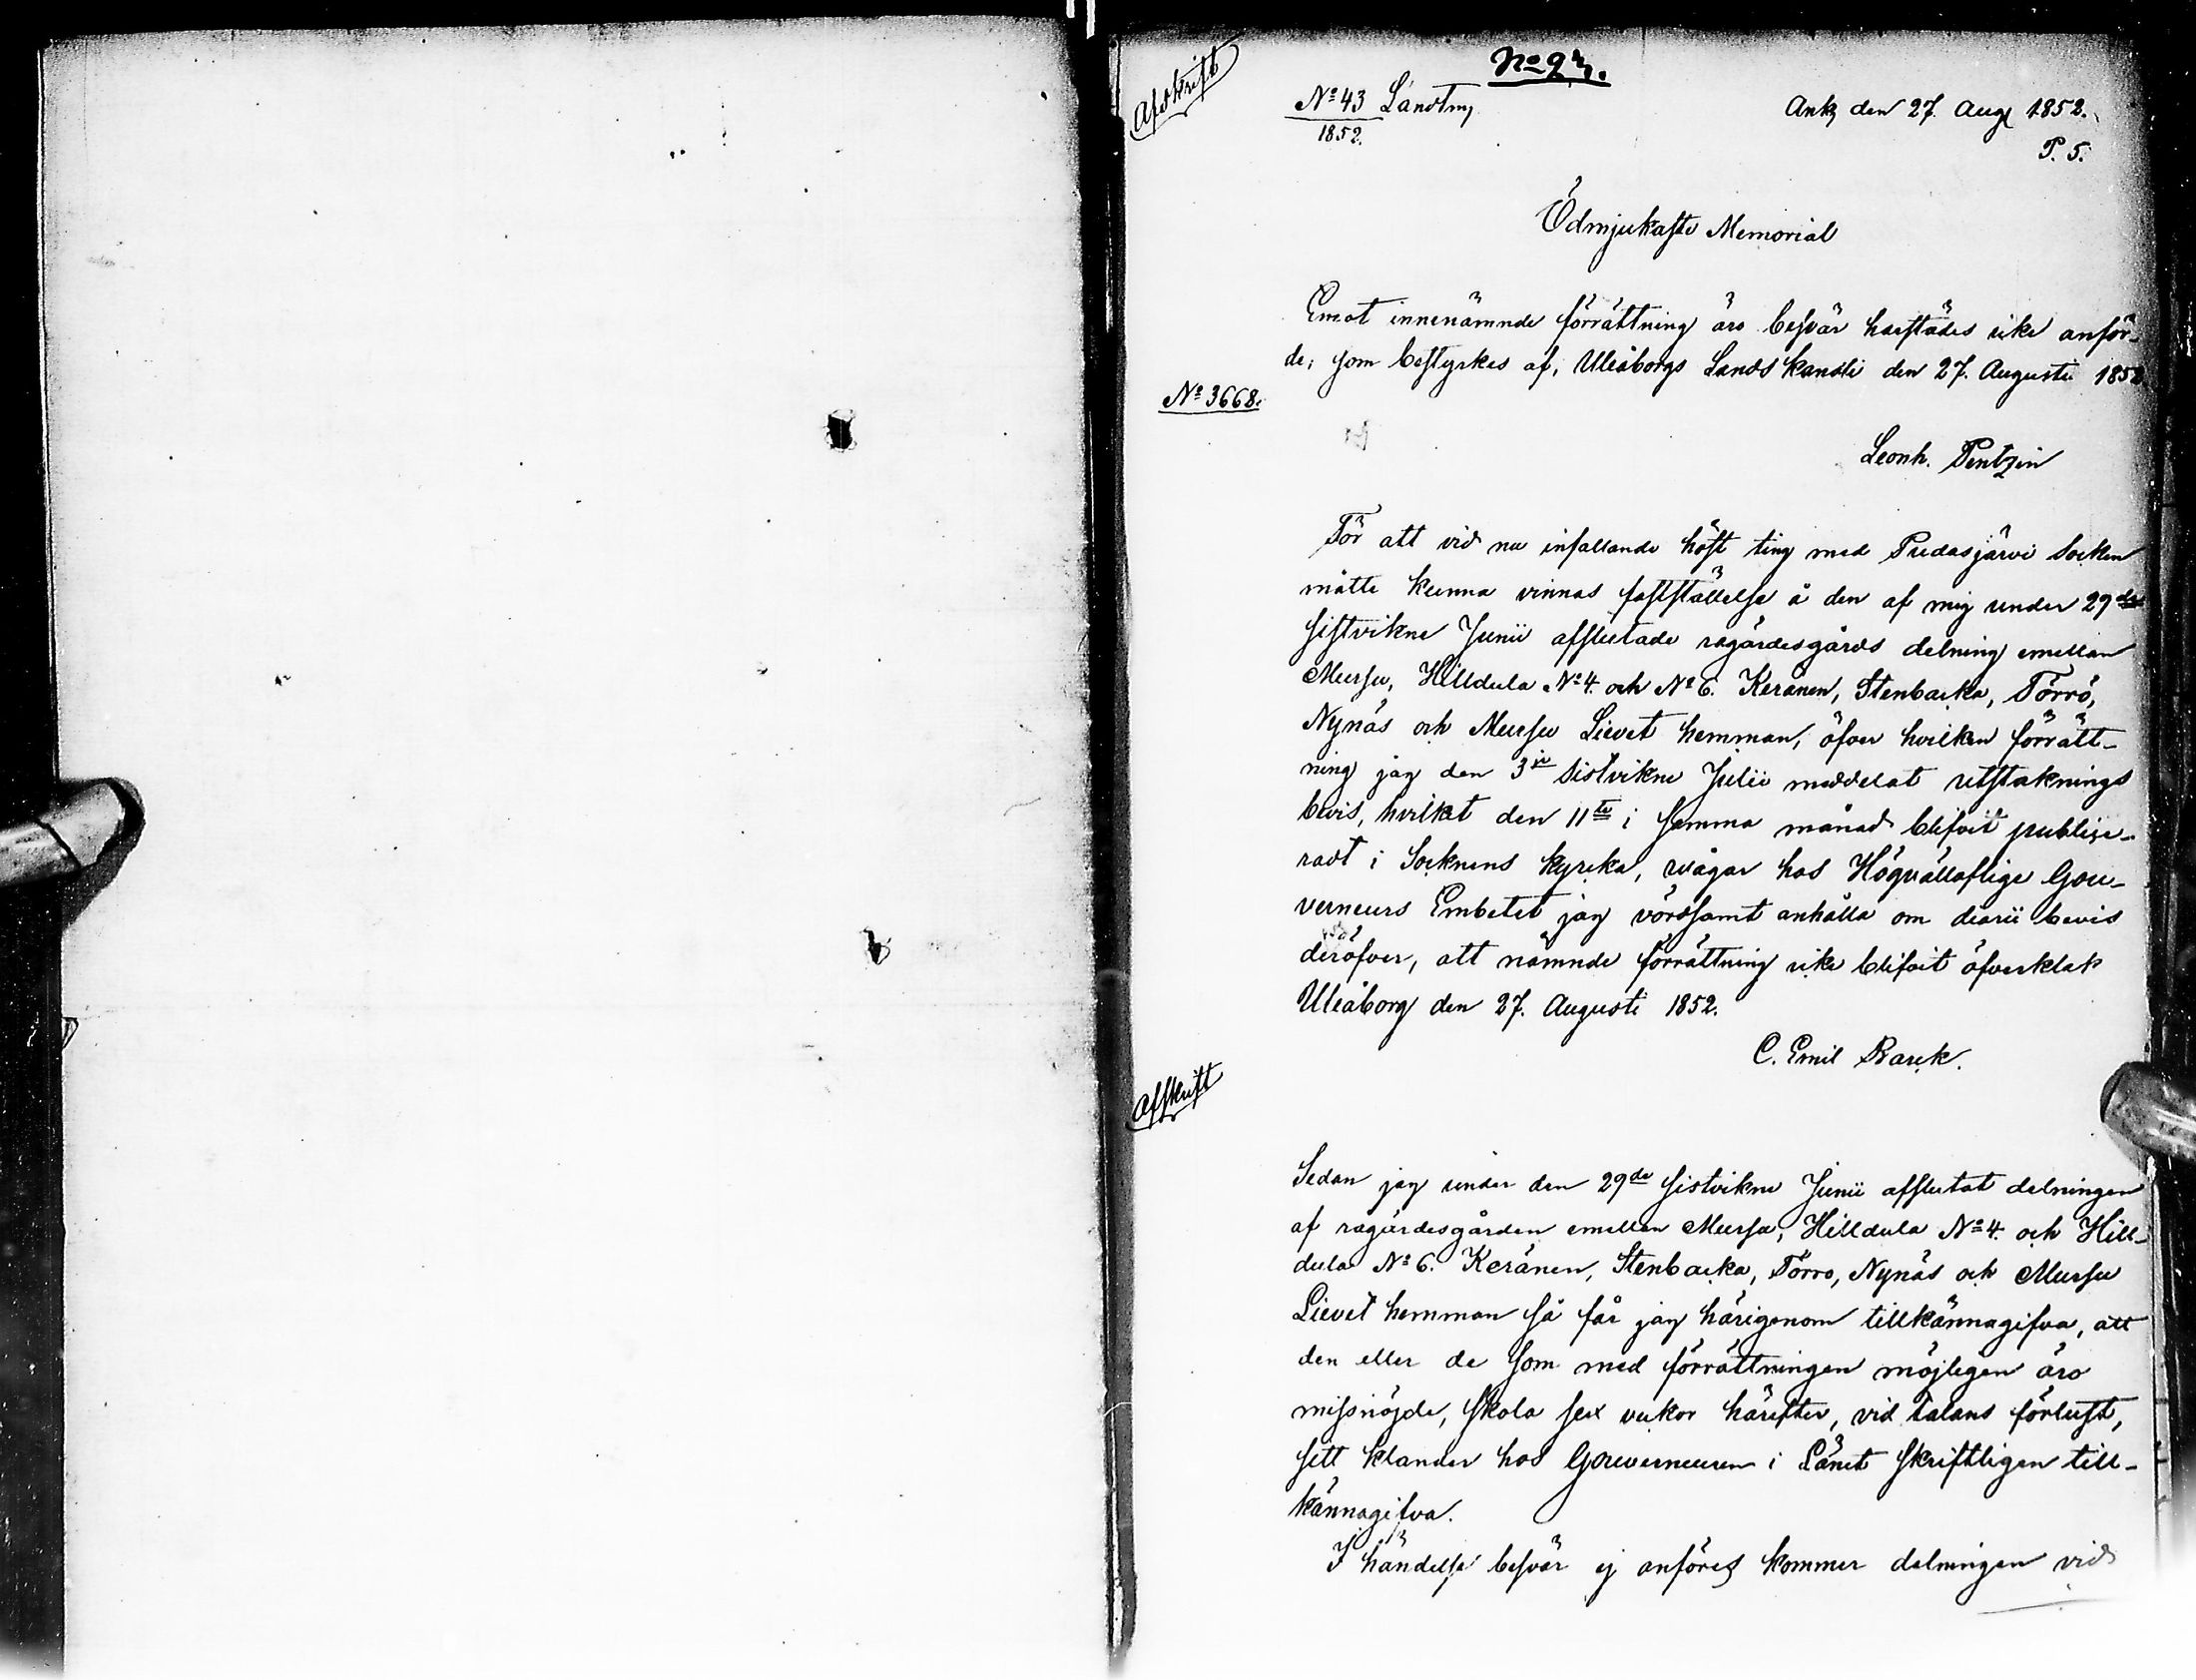 Afskrift
No 43 Landtm
1852.
Ank den 27. Aug 1852.
P. 5.
Ödmjukaste Memorial
Emot innenämnde förrättning äro besvär härstädes icke anför-
de; som bestyrkes af, Uleåborgs Lands Kansli den 27. Augusti 1852
No 3668.
Leonh. Pentzin
För att vid nu infallande höst ting med Pudasjärvi Socken
måtte kunna vinnas fastställelse å den af mig under 29de
sistvikne Junii afslutade rågärdesgårds delning emellan
Mursu, Hilldula No 4. och No 6. Keränen, Stenbacka, Törrö,
Nynäs och Mursu Lievet hemman, öfver hvilken förrätt-
ning jag den 3je sistvikne Julii meddelat utstaknings
bevis, hvilket den 11te i samma månad blifvit publice-
radt i Socknens kyrka, vågar hos Högvällaflige Gou-
verneurs Embetet jag vördsamt anhålla om diarii bevis
deröfver, att nämnde förrättning icke blifvit öfverklak
Uleåborg den 27. Augusti 1852.
C. Emil Barck.
Afskrift
Sedan jag under den 29de sistvikne Junii afslutat delningen
af rågärdesgården emellan Mursu, Hilldula No 4. och Hill-
dula No 6. Keränen, Stenbacka, Törro, Nynäs och Mursu
Lievet hemman så får jag härigenom tillkännagifva, att
den eller de som med förrättningen möjligen äro
missnöjde, skola sex veckor härefter, vid talans förlust,
sitt klander hos Gouverneuren i Länet skriftligen till-
kännagifva.
I händelse besvär ej anföres kommer delningen vid